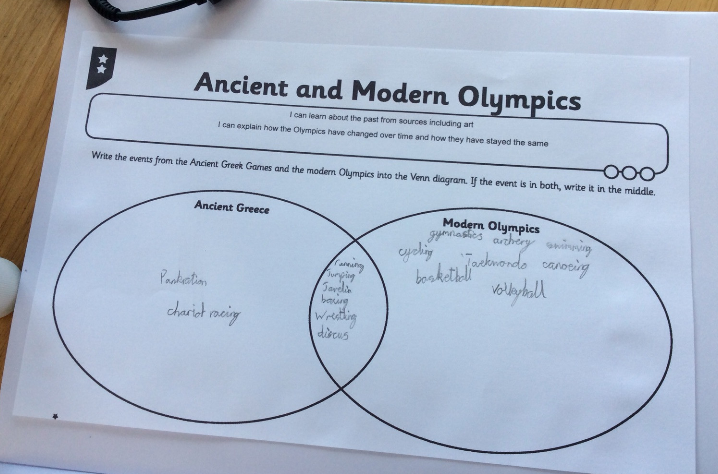 Ancient and Modern Olympics
I can learn about the past from sources including art
I can explain how the Olympics have changed over time and how they have stayed the same
Write the events from the Ancient Greek Games and the modern Olympics into the Venn diagram. If the event is in both, write it in the middle.
Ancient Greece
Pankration
chariot racing
running
Jumping
Javelin
boxing
Wrestling
discus
Modern Olympics
gymnastics archery swimming
cycling Taekwondo canoeing
basketball volleyball